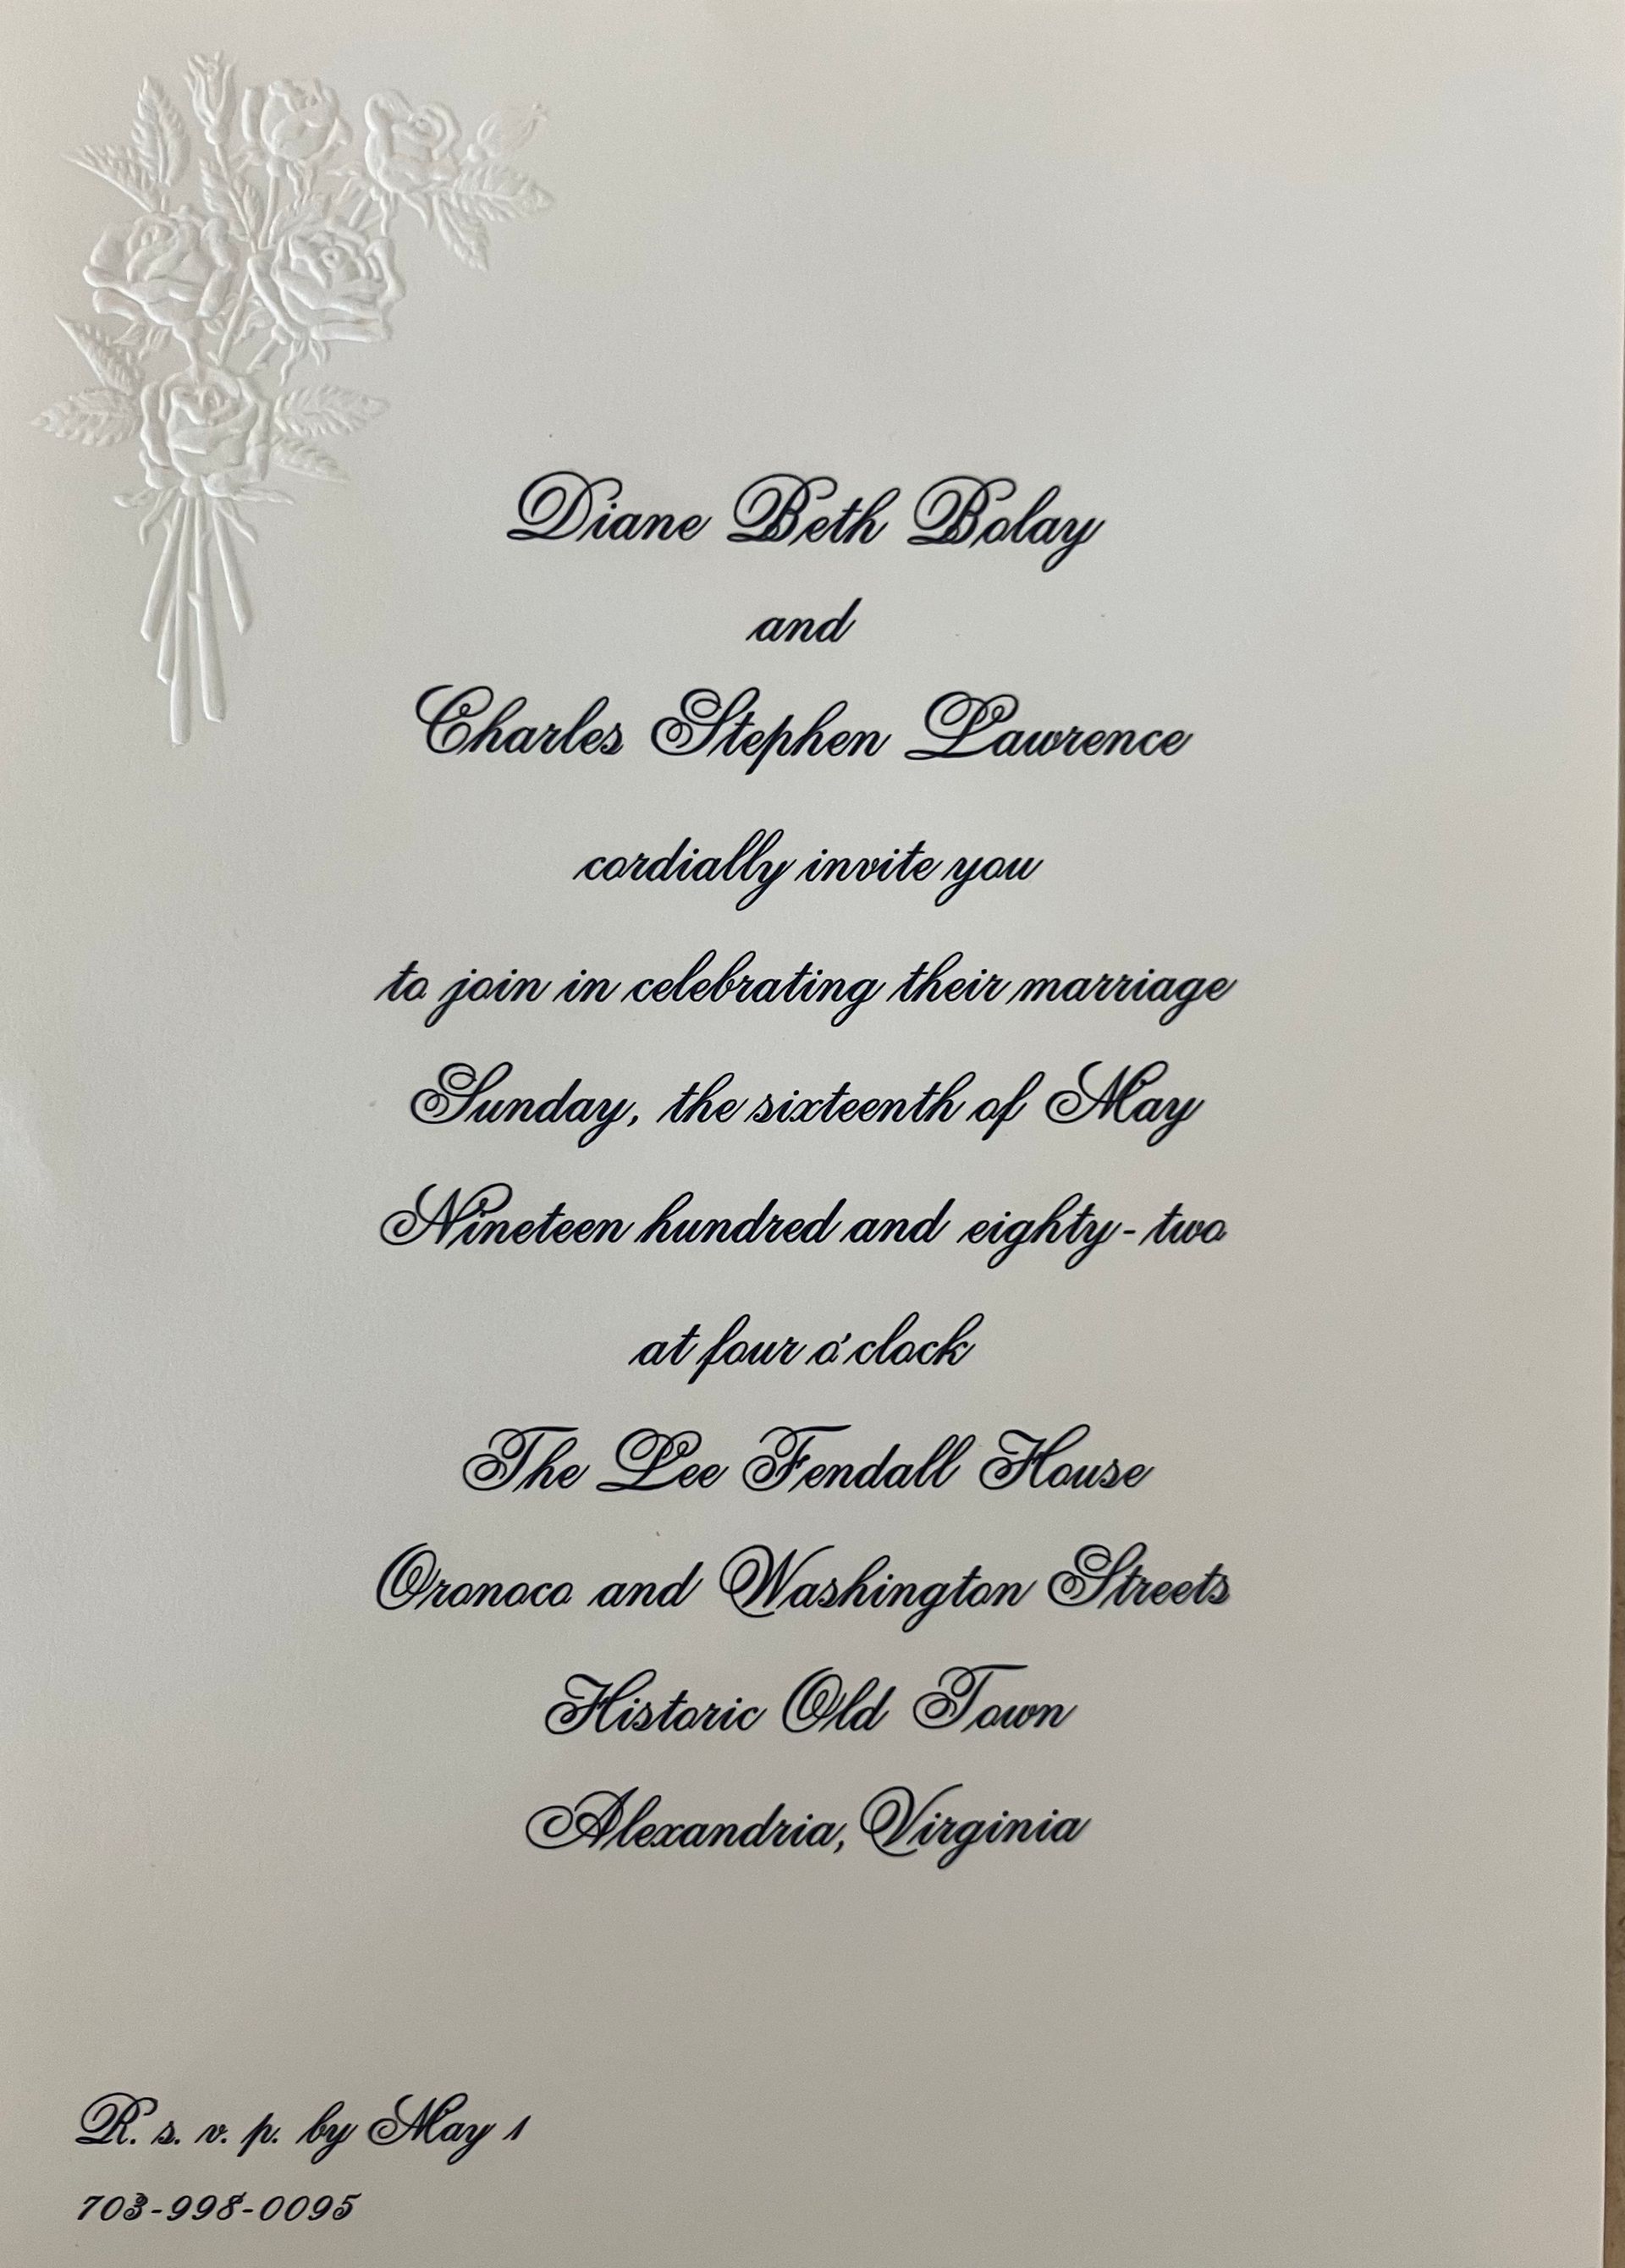 Diane Beth Bolay
and
Charles Stephen Lawrence
cordially invite you
to join in celebrating their marriage
Sunday, the sixteenth of May
Nineteen hundred and eighty-two
at four o'clock
The Lee Fendall House
Oronoco and Washington Streets
Historic Old Town
Alexandria, Virginia
R. s. v. p. by May 1
703-998-0095